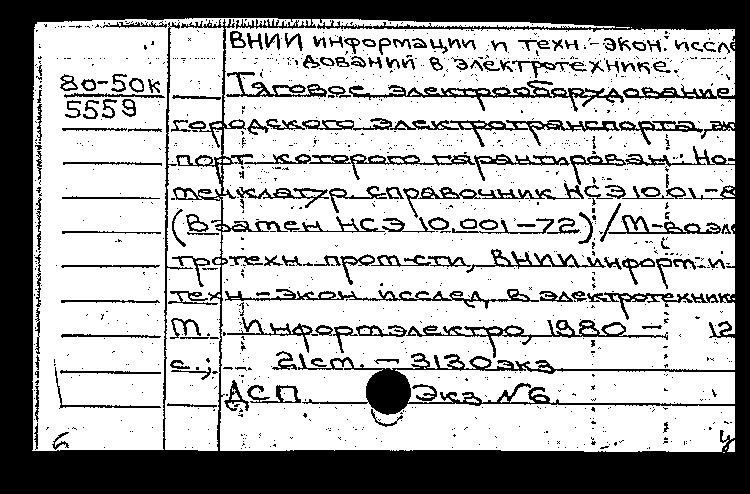 ВНИИ информации и техн.-экон. иссле
дований в электротехнике.
80-50к
5559
Тяговое электрооборудование
городского электротранспорта, эк
порт которого гарантирован: Но-
менклатур. справочник НСЭ 10.01.-8
(Взамен НСЭ 10.001-72) / М-во эле
тротехн. пром-сти, ВНИИ информ. и
техн-экон исслед. в электротехнике
М. Информэлектро, 1980 - 12
с.; 21см. - 3130 экз
АСП. Экз. №6.
б у